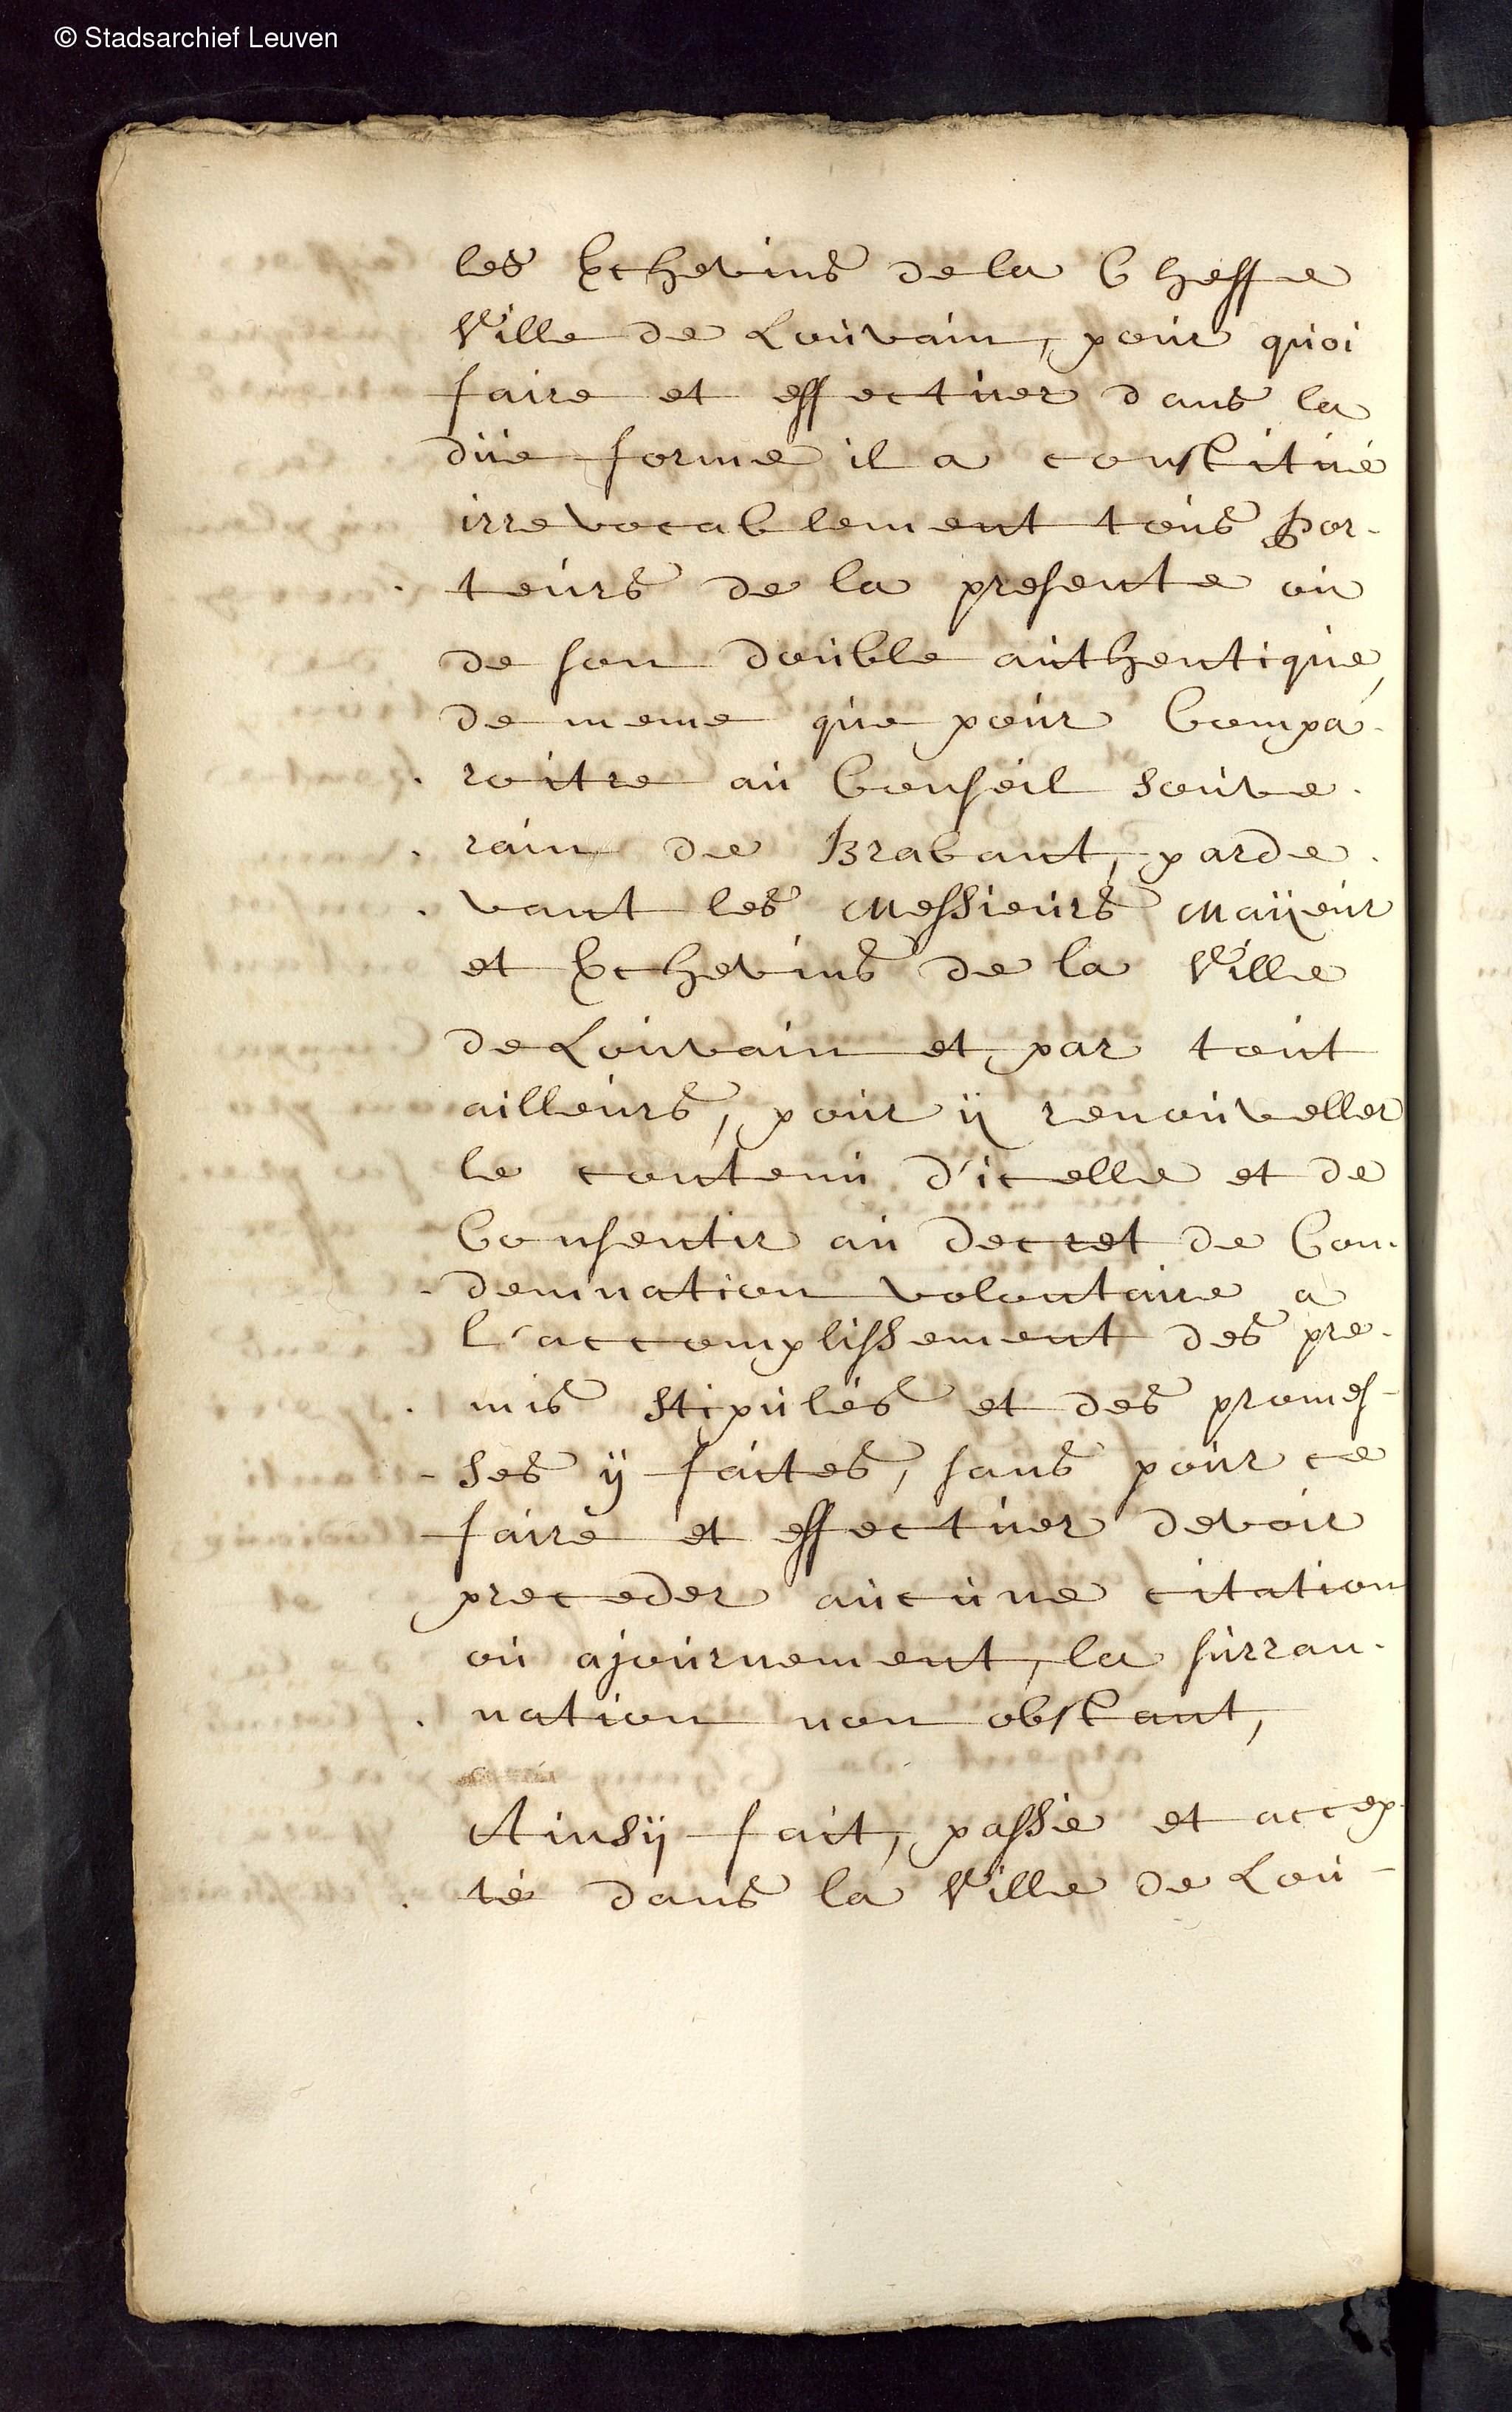 © Stadsarchief Leuven
les Echevins de la Cheffe
Ville de Louvain, pour quoi
faire et effectuer dans la
düe forme il a constitué
irrevocablement tous Por-
teurs de la presente ou
de son double authentique,
de meme que pour Compa-
roitre au Conseil souve-
rain de Brabant, parde-
vant les Messieurs Maÿeur
et Echevins de la Ville
de Louvain et par tout
ailleurs, pour ÿ renouveller
le contenu d'icelle et de
Consentir au decret de Con-
demnation volontaire a
l'accomplissement des pre-
mis stipulés et des promes-
ses ÿ faites, sans pour ce
faire et effectuer devoir
preceder aucune citation
ou ajournement, la surran-
nation non obstant,
Ainsÿ fait, passé et accep-
té dans la Ville de Lou-